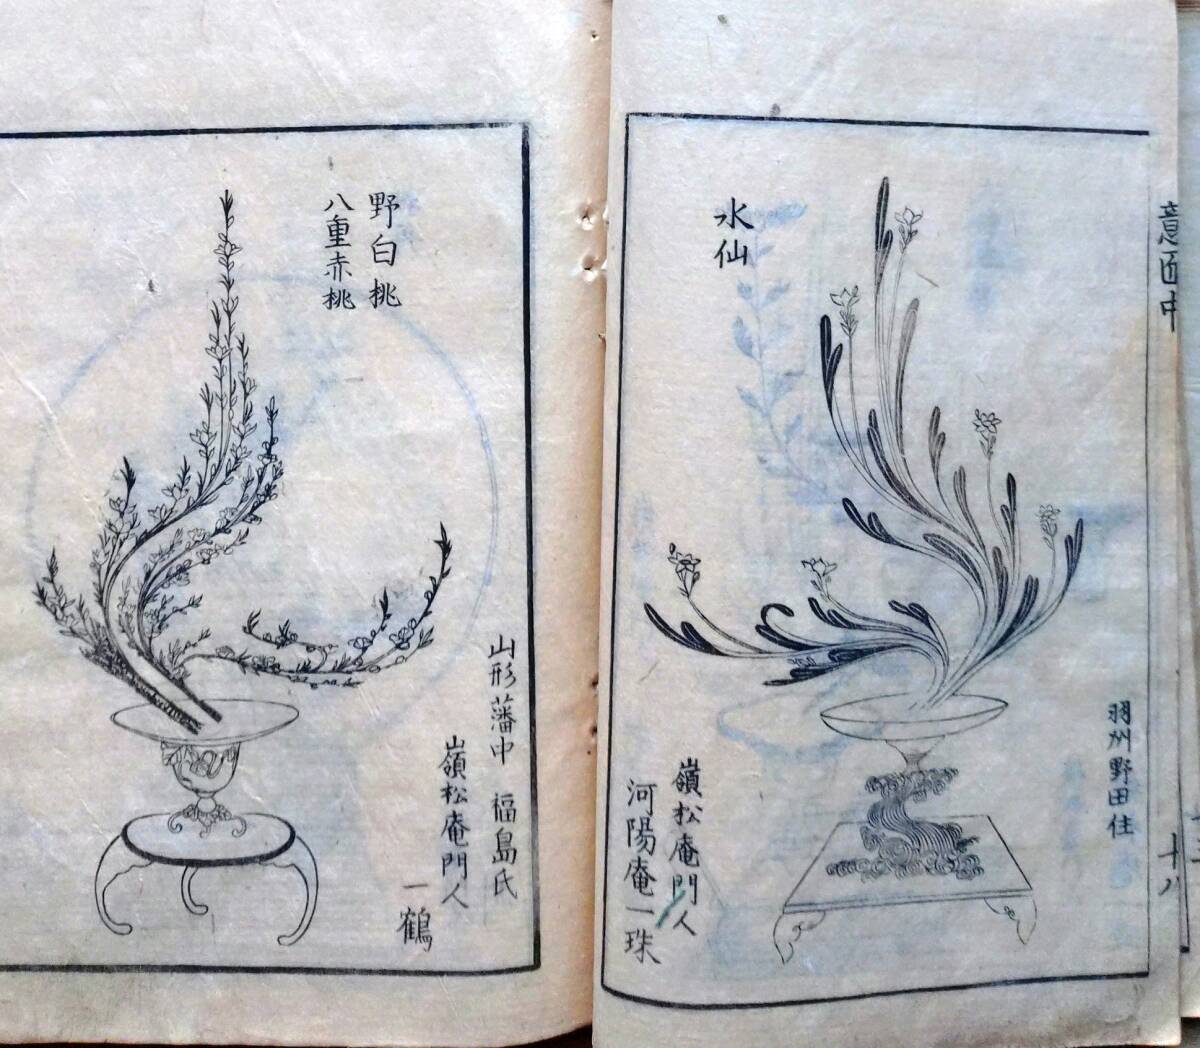 水仙
羽州野田住
嶺松庵門人
河陽庵一珠
野白桃
八重赤桃
山形藩中　福島氏
嶺松庵門人
一鶴
意匠中
十八